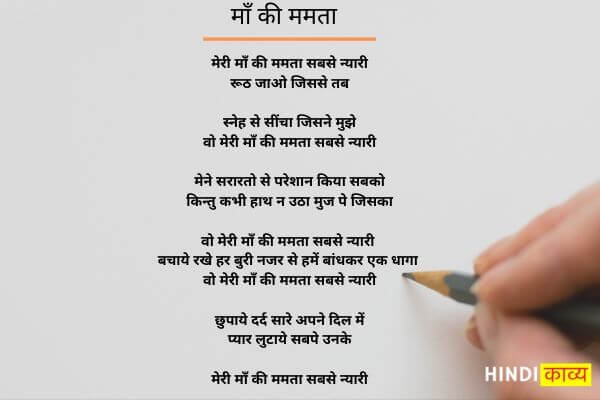 माँ की ममता
मेरी माँ की ममता सबसे न्यारी
रूठ जाओ जिससे तब
स्नेह से सींचा जिसने मुझे
वो मेरी माँ की ममता सबसे न्यारी
मेने सरारतो से परेशान किया सबको
किन्तु कभी हाथ न उठा मुज पे जिसका
वो मेरी माँ की ममता सबसे न्यारी
बचाये रखे हर बुरी नजर से हमें बांधकर एक धागा
वो मेरी माँ की ममता सबसे न्यारी
छुपाये दर्द सारे अपने दिल में
प्यार लुटाये सबपे उनके
मेरी माँ की ममता सबसे न्यारी
HINDI काव्य